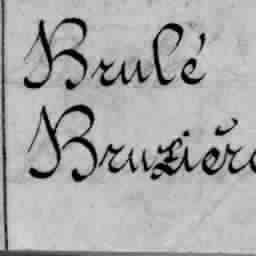 Brulé
Bruzière